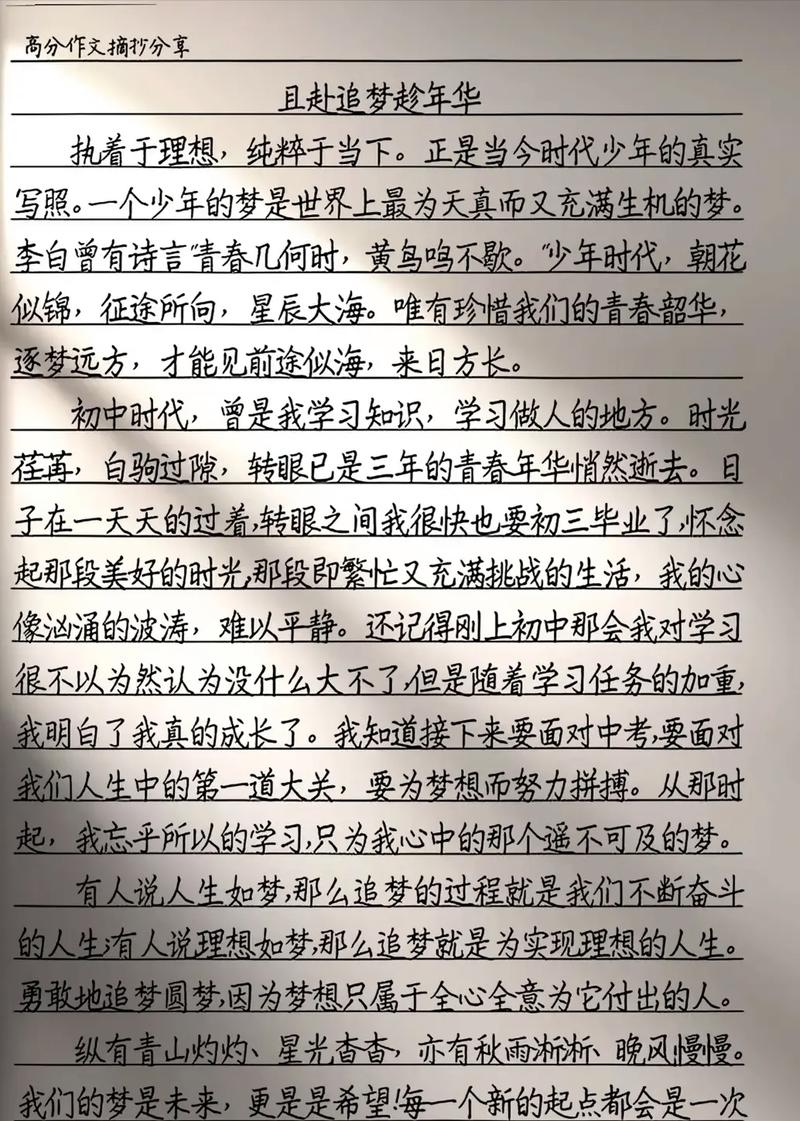 高分作文摘抄分享
且赴追梦趁年华
执着于理想，纯粹于当下。正是当今时代少年的真实
写照。一个少年的梦是世界上最为天真而又充满生机的梦。
李白曾有诗言“青春几何时，黄鸟鸣不歇。”少年时代，朝花
似锦，征途所向，星辰大海。唯有珍惜我们的青春韶华，
逐梦远方，才能见前途似海，来日方长。
初中时代，曾是我学习知识，学习做人的地方。时光
荏苒，白驹过隙，转眼已是三年的青春年华悄然逝去。日
子在一天天的过着，转眼之间我很快也要初三毕业了，怀念
起那段美好的时光，那段即繁忙又充满挑战的生活，我的心
像汹涌的波涛，难以平静。还记得刚上初中那会我对学习
很不以为然认为没什么大不了，但是随着学习任务的加重，
我明白了我真的成长了。我知道接下来要面对中考，要面对
我们人生中的第一道大关，要为梦想而努力拼搏。从那时
起，我忘乎所以的学习，只为我心中的那个遥不可及的梦。
有人说人生如梦，那么追梦的过程就是我们不断奋斗
的人生；有人说理想如梦，那么追梦就是为实现理想的人生。
勇敢地追梦圆梦，因为梦想只属于全心全意为它付出的人。
纵有青山灼灼、星光杳杳，亦有秋雨淅淅、晚风慢慢。
我们的梦是未来，更是是希望！每一个新的起点都会是一次